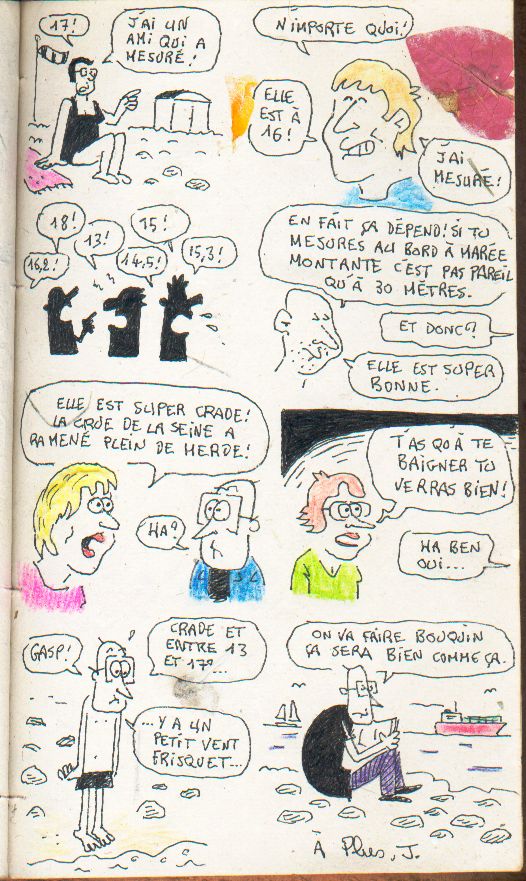 17!
J'AI UN
AMI QUI A
MESURÉ!
N'IMPORTE QUOI!
ELLE
EST À
16!
J'AI
MESURÉ!
18!
13!
15!
16,2!
14,5!
15,3!
EN FAIT ÇA DÉPEND! SI TU
MESURES AU BORD À MARÉE
MONTANTE C'EST PAS PAREIL
QU'À 30 MÈTRES.
ET DONC?
ELLE EST SUPER
BONNE.
ELLE EST SUPER CRADE!
LA CRUE DE LA SEINE A
RAMENÉ PLEIN DE MERDE!
HA?
T'AS QU'À TE
BAIGNER TU
VERRAS BIEN!
HA BEN
OUI...
GASP!
CRADE ET
ENTRE 13
ET 17°...
...Y A UN
PETIT VENT
FRISQUET...
ON VA FAIRE BOUQUIN
ÇA SERA BIEN COMME ÇA.
À Plus, J.